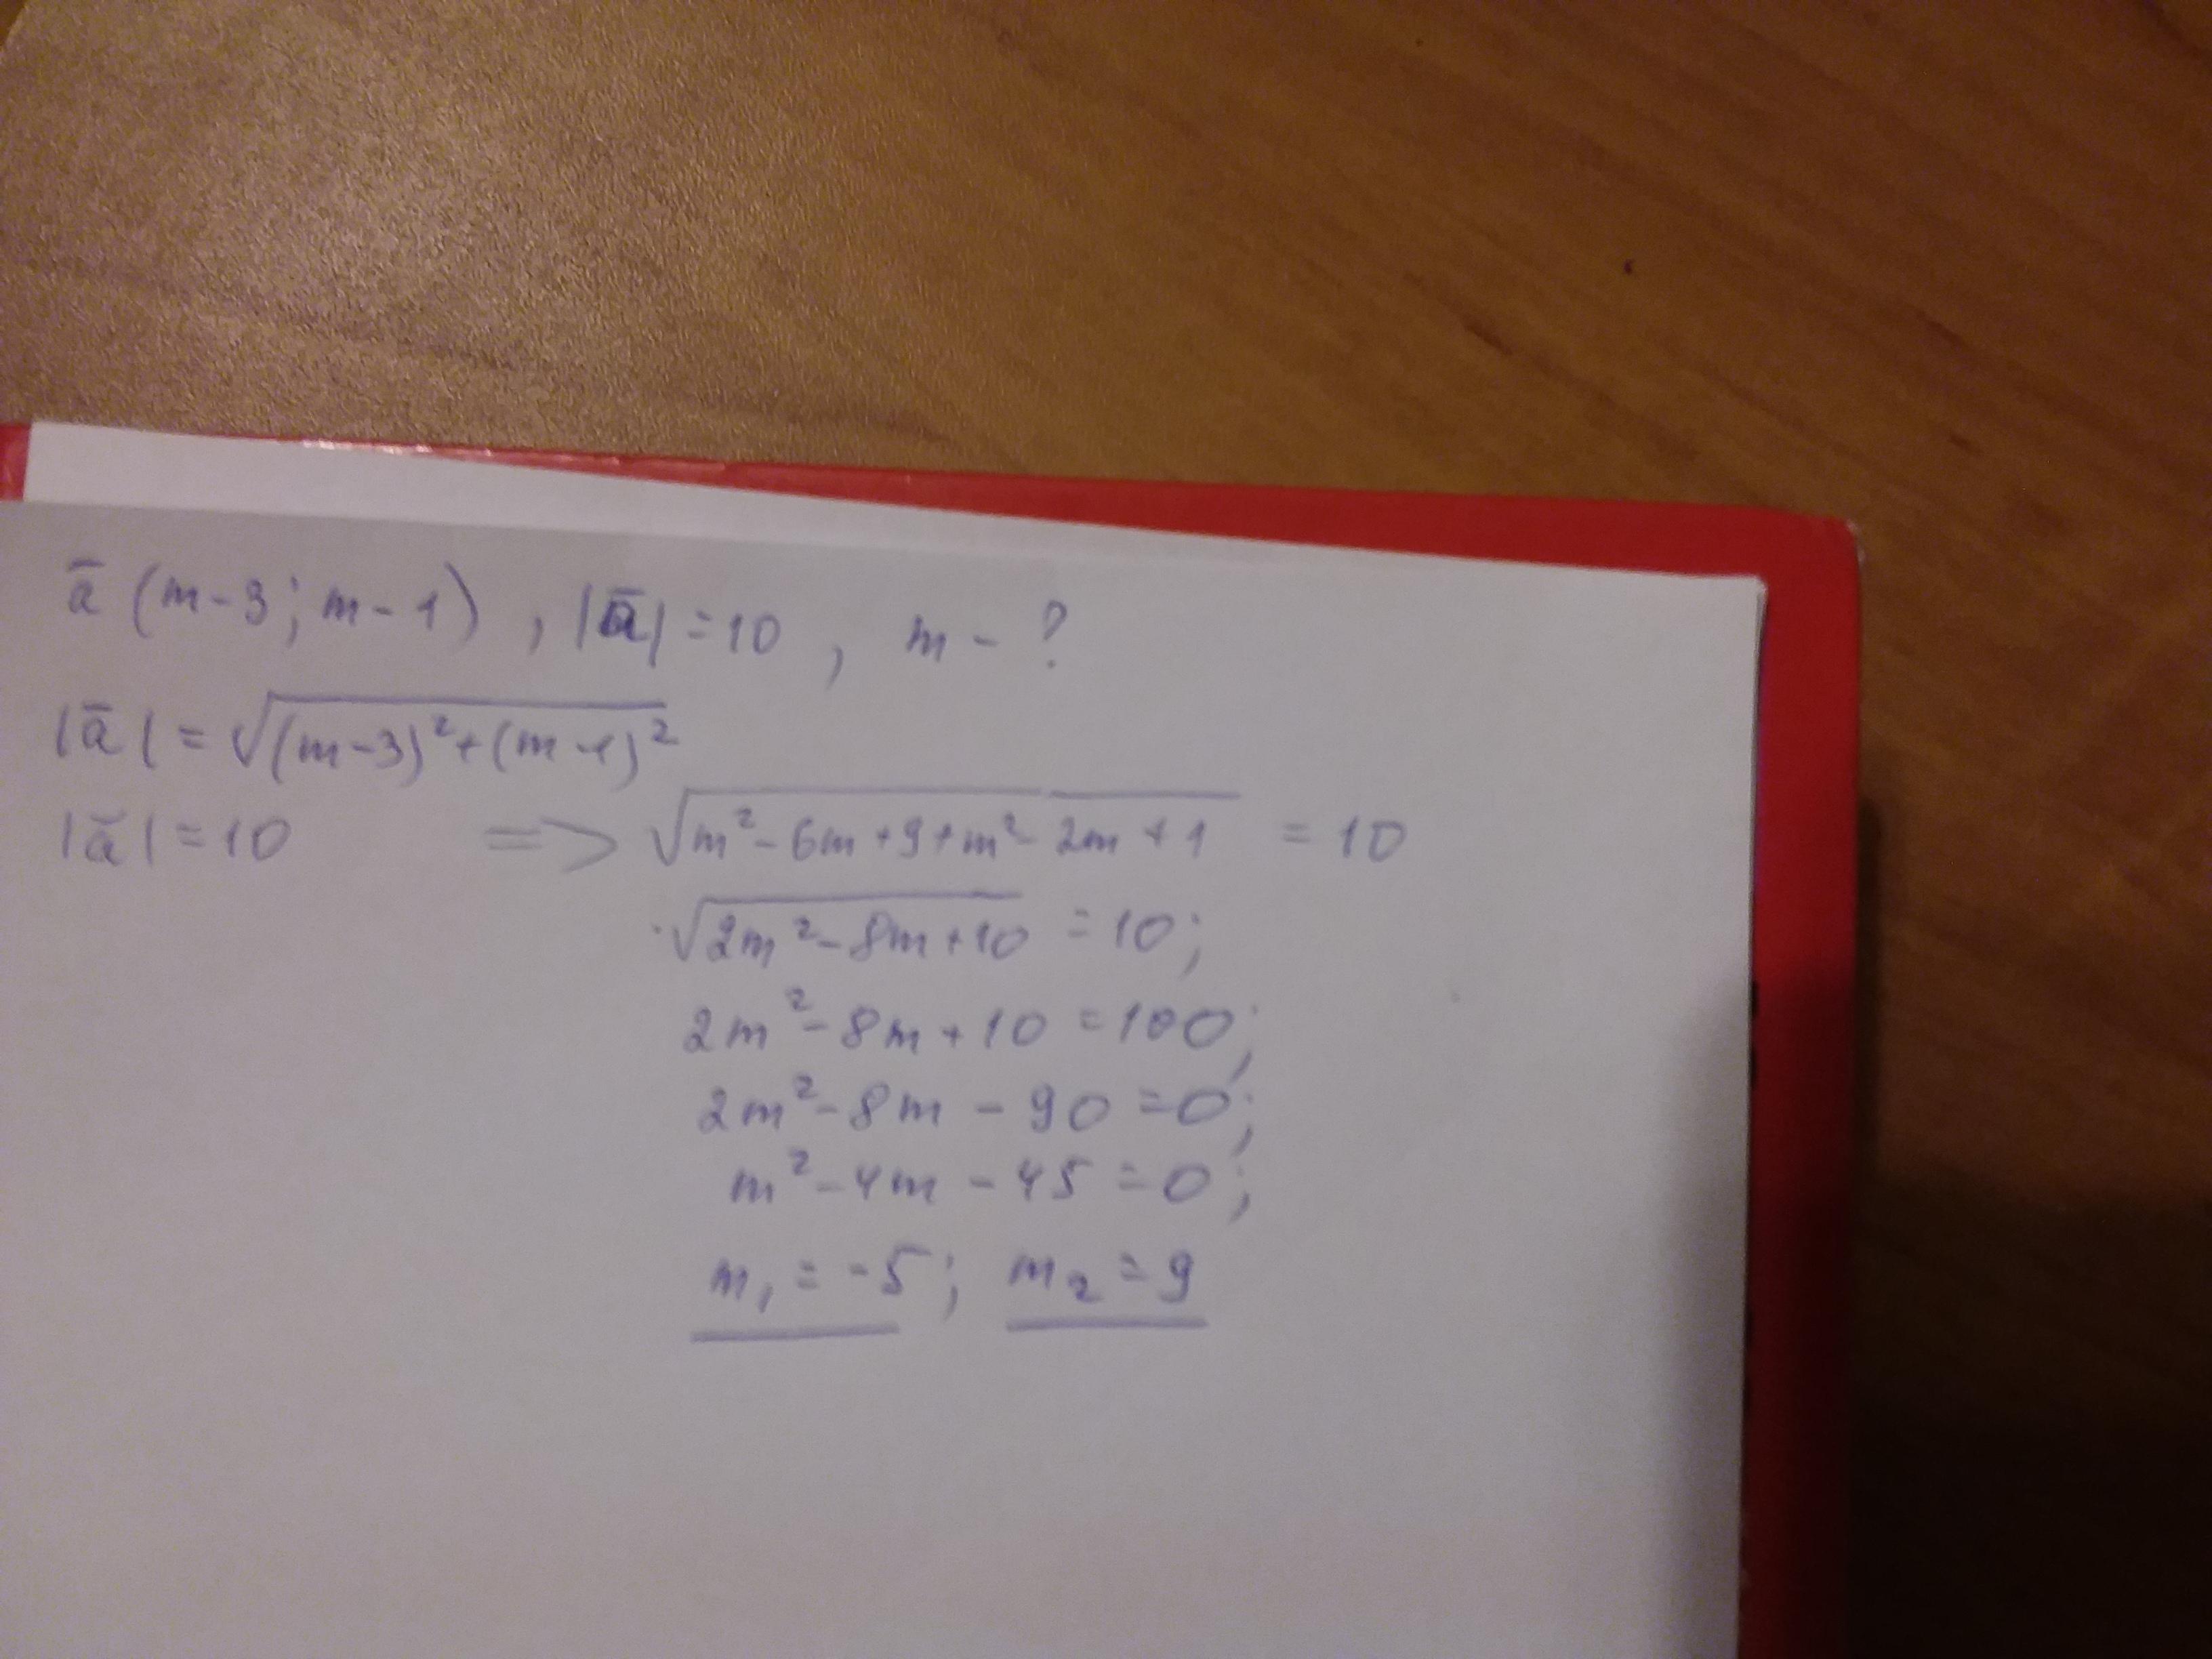 ā (m-3; m-1), |ā|=10, m-?
|ā| = √((m-3)²+(m-1)²)
|ā|=10 => √(m²-6m+9+m²-2m+1) = 10
√(2m²-8m+10) = 10;
2m²-8m+10 = 100;
2m²-8m-90=0;
m²-4m-45=0;
m₁=-5; m₂=9